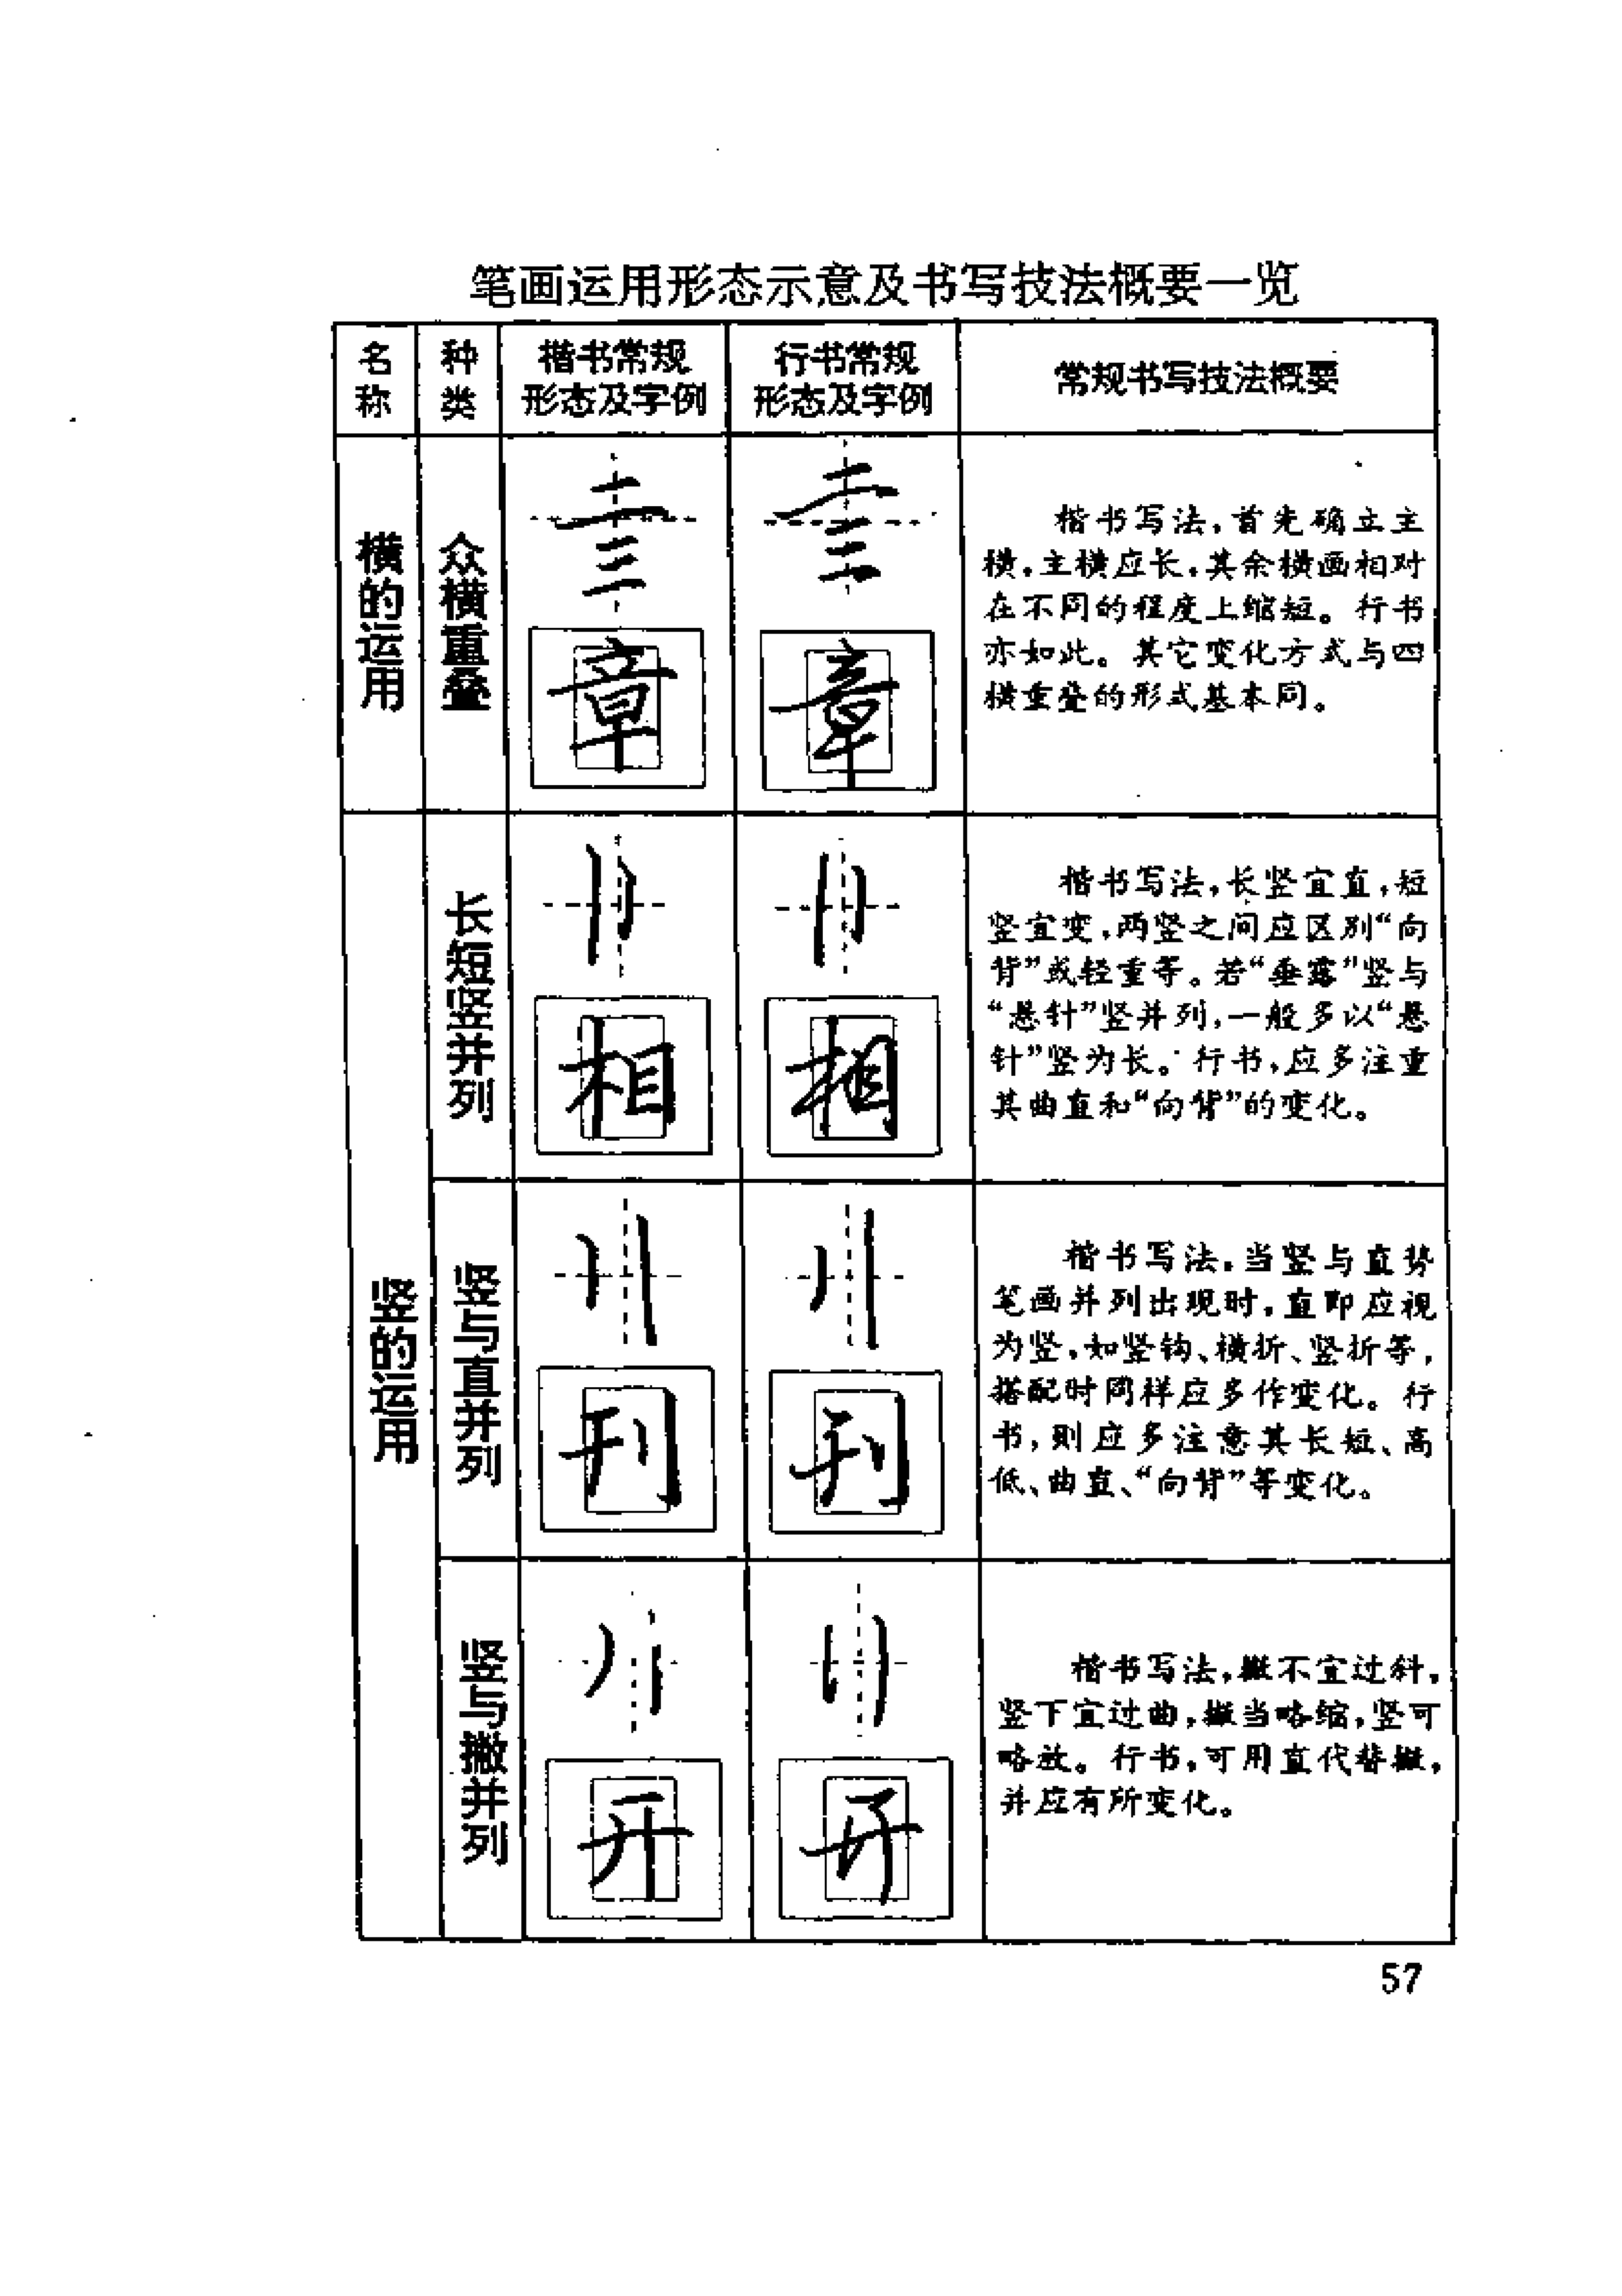 笔画运用形态示意及书写技法概要一览
名称
种类
楷书常规
形态及字例
行书常规
形态及字例
常规书写技法概要
横的运用
众横重叠
章
章
楷书写法,首先确立主
横,主横应长,其余横画相对
在不同的程度上缩短。行书
亦如此。其它变化方式与四
横重叠的形式基本同。
竖的运用
长短竖并列
相
相
楷书写法,长竖宜直,短
竖宜变,两竖之间应区别“向
背”或轻重等。若“垂露”竖与
“悬针”竖并列,一般多以“悬
针”竖为长。行书,应多注重
其曲直和“向背”的变化。
竖与直并列
刊
刊
楷书写法,当竖与直势
笔画并列出现时,直即应视
为竖,如竖钩、横折、竖折等,
搭配时同样应多作变化。行
书,则应多注意其长短、高
低、曲直、“向背”等变化。
竖与撇并列
开
开
楷书写法,撇不宜过斜,
竖下宜过曲,撇当略缩,竖可
略放。行书,可用直代替撇,
并应有所变化。
57